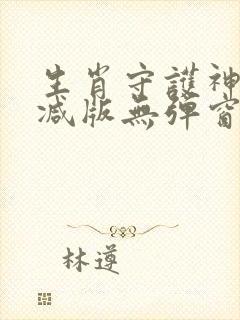 生肖守護神
減版無彈窗
林遵